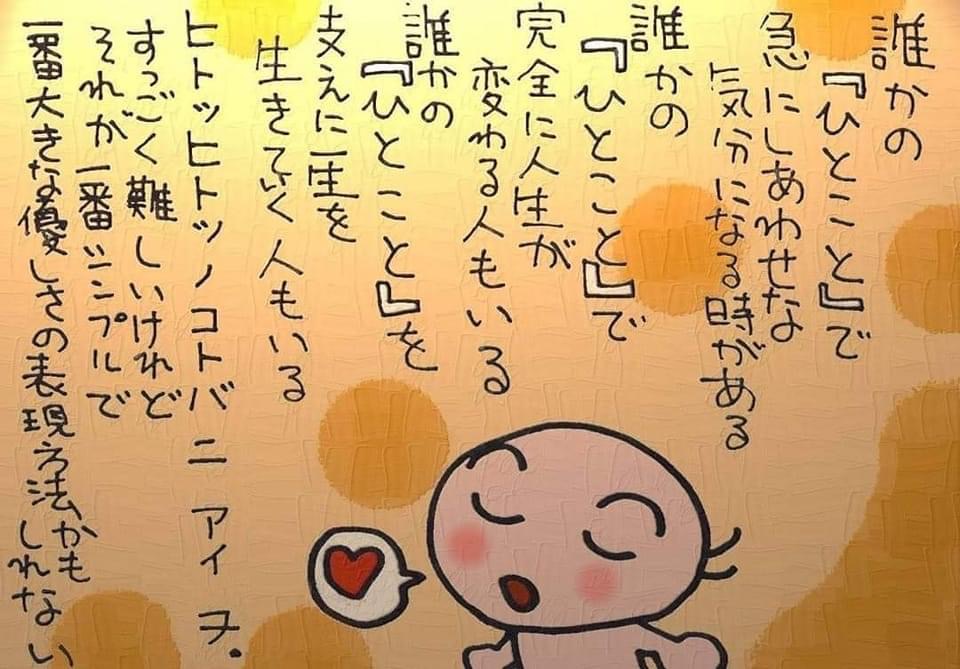 誰かの
『ひとこと』で
急にしあわせな
気分になる時がある
誰かの
『ひとこと』で
完全に人生が
変わる人もいる
誰かの
『ひとこと』を
支えに一生を
生きていく人もいる
ヒトツヒトツノコトバニアイヲ.
すっごく難しいけれど
それが一番シンプルで
一番大きな優しさの表現方法かも
しれない